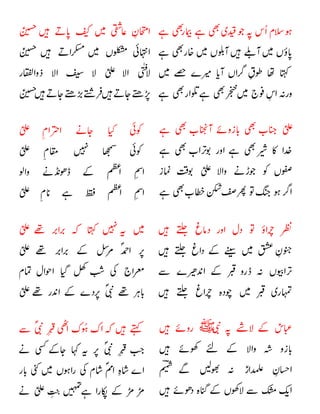 ہو سلام اُس پہ جو قیدی بھی ہے بیمار بھی ہے
امتحانِ عاشقی میں کیف پاتے ہیں حسینؑ
پاؤں میں آبلے ہیں آبلوں میں خار بھی ہے
انتہائی مشکلوں میں مسکراتے ہیں حسینؑ
کہتا تھا طوقِ گراں آیا میرے حصے میں
لا فتیٰ الا علیؑ لا سیف الا ذوالفقار
ورنہ اس فوج میں خنجر بھی ہے تلوار بھی ہے
پڑھتے جاتے ہیں فرشتے بڑھتے جاتے ہیں حسینؑ
علیؑ جناب بھی ہے بازوئے آنجناب بھی ہے
کوئی کیا جانے احترامِ علیؑ
خدا کا شیر بھی ہے اور بوتراب بھی ہے
کوئی سمجھا نہیں مقامِ علیؑ
صفوں کو جوڑنے والا علیؑ بوقت نماز
اسمِ اعظم کے ڈھونڈنے والو
اگر ہو جنگ تو پھر صف شکن خطاب بھی ہے
اسمِ اعظم ہے فقط نامِ علیؑ
نظر چراؤ تو دل اور دماغ جلتے ہیں
میں یہ نہیں کہتا کہ برابر تھے علیؑ
جنونِ عشق میں سینے کے داغ جلتے ہیں
پر احمدؐ مرسل کے برابر کے تھے علیؑ
ترابیوں نہ ڈرو قبر کے اندھیرے سے
معراج کی شب کھل گیا احوال تمام
تمہاری قبر میں چودہ چراغ جلتے ہیں
باہر تھے نبیؐ پردے کے اندر تھے علیؑ
عباسؑ کے لاشے پہ نبی ﷺ روئے ہیں
کہتے ہیں کہ اک ہُوک اٹھی قبرِ نبیؐ سے
بازو شہ والا کے لئے کھوئے ہیں
جب قبرِ نبیؐ پر یہ کہا جاکے کسی نے
احسانِ علمدارؑ نہ بھولیں گے
اے شاہِ امم شام کی راہوں میں کئی بار
ایک مشک سے لاکھوں کے گناہ دھوئے ہیں
مڑ مڑ کے پکارا ہے تمہیں بنتِ علیؑ نے